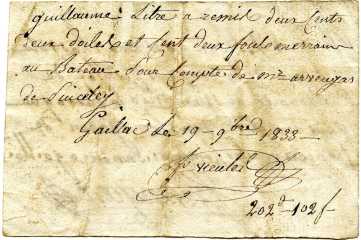 guillaume Litre a remis deux Cents
deux doiles et Cent deux fonts merrain
au Bateau Pour Compte de mr arrengas
de
Gaillac le 19 9bre 1838
vieules
202d 102f